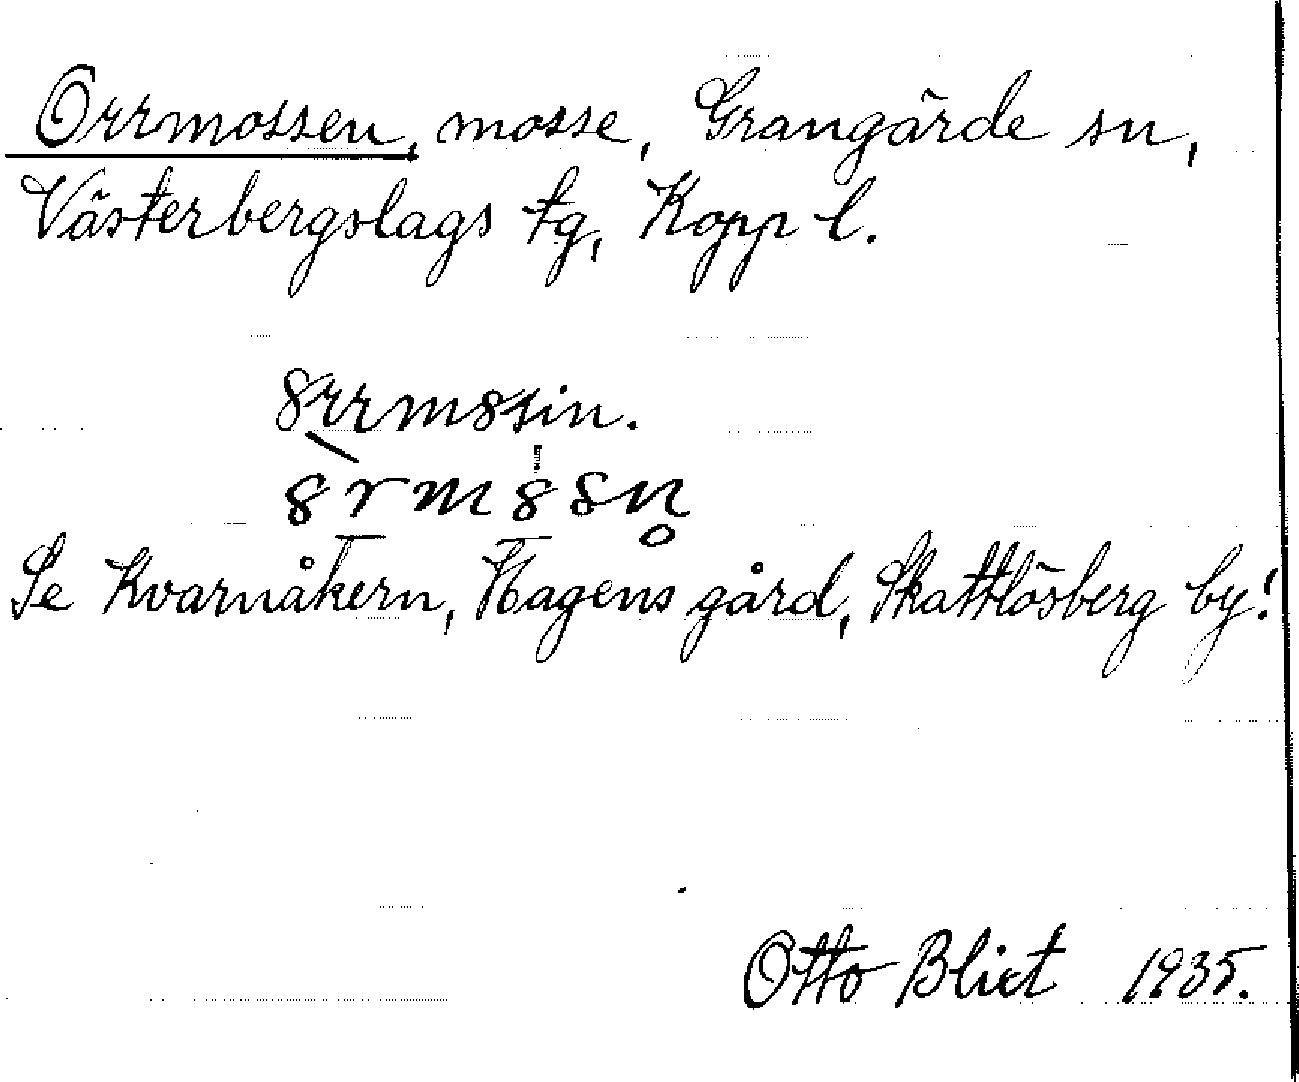 Orrmossen, mosse, Grangärde sn,
Västerbergslags tg, Kopp l.
8rrm8sin.
8rm8sn̥
Se Kvarnåkern, Hagens gård, Skattlösberg by!
Otto Blixt 1935.